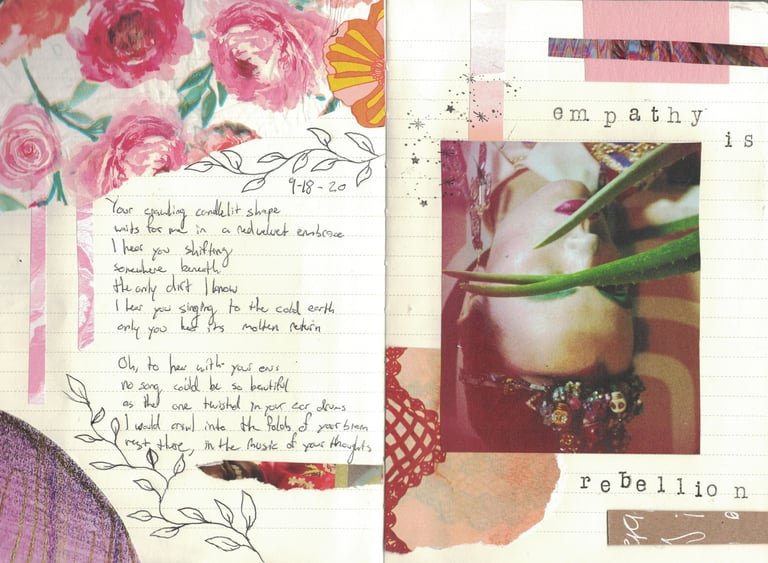 9-18-20
Your crawling candlelit shape
waits for me in a red velvet embrace
I hear you shifting
somewhere beneath
the only dirt I know
I hear you singing to the cold earth
only you hear its molten return
Oh, to hear with your ears
no song could be so beautiful
as the one twisted in your ear drums
I would crawl into the folds of your brain
rest there, in the music of your thoughts
empathy
is
rebellion